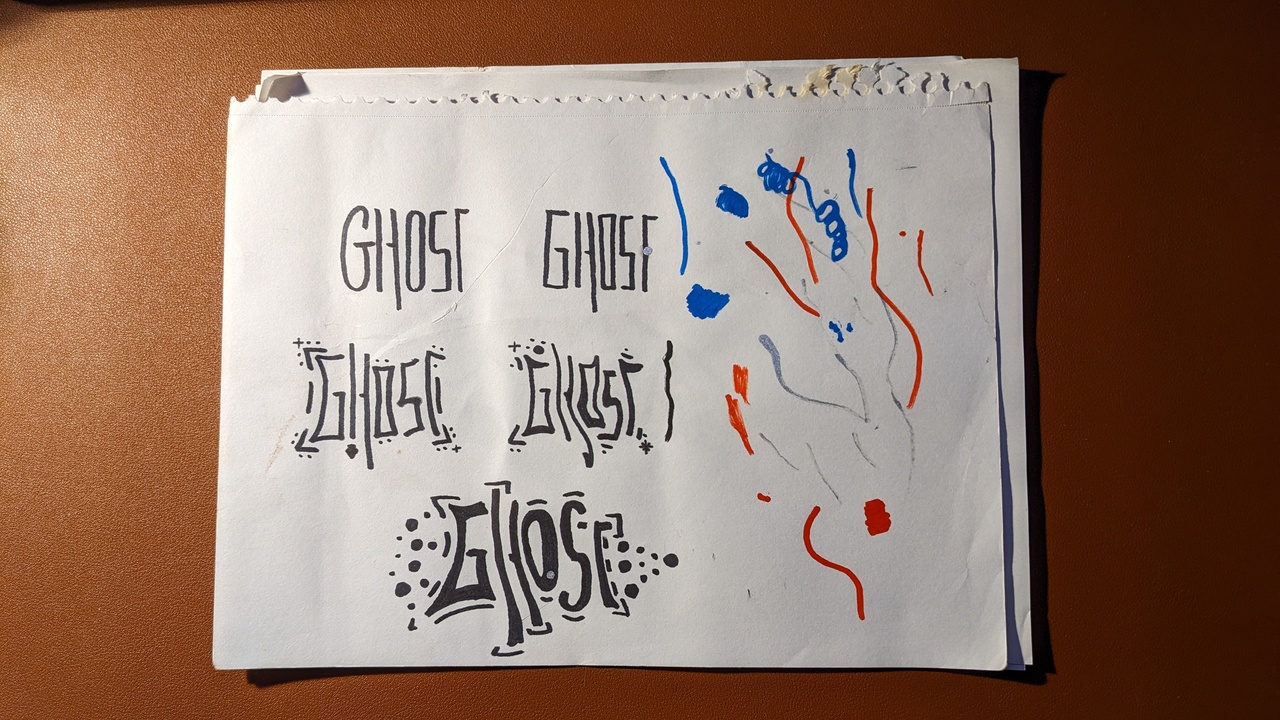 GHOST GHOST
GHOST GHOST
GHOST